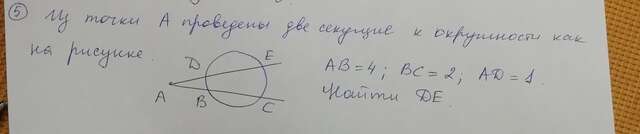 ⑤ Из точки А проведены две секущие к окружности как
на рисунке.
D E
A B C
AB=4; BC=2; AD=1.
Найти DE.